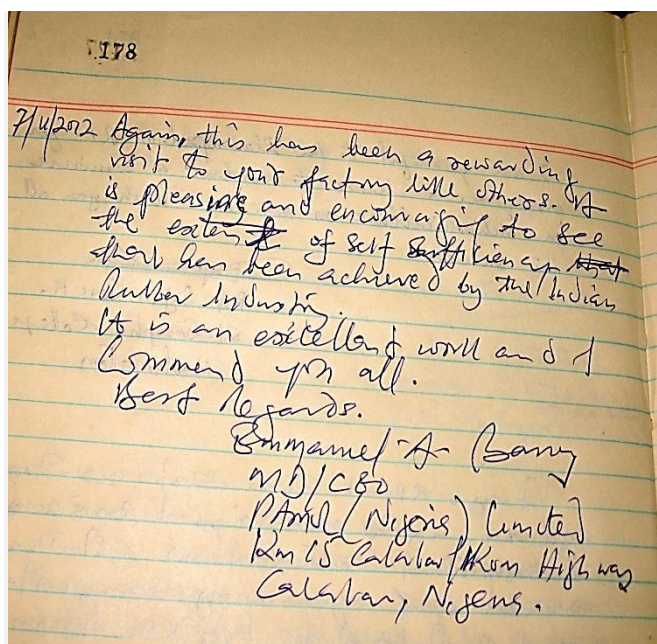 178
7/11/2012 Again, this has been a rewarding
visit to your factory like others. It
is pleasing and encouraging to see
the extent of self sufficiency that
that has been achieved by the Indian
Rubber Industry.
It is an excellent work and I
Commend you all.
Best Regards.
Emmanuel A Barry
MD/CEO
PAMOL (Nigeria) Limited
Km 15 Calabar/Ikom Highway
Calabar, Nigeria.